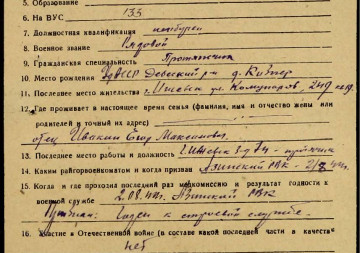 5. Образование
6. На ВУС 133
7. Должностная квалификация
8. Военное звание Рядовой
9. Гражданская специальность
10. Место рождения УАССР Дебесский р-н д.
11. Последнее место жительства г. Ижевск ул. Коммунаров, 249
12. Где проживает в настоящее время семья (фамилия, имя и отчество жены или
родителей и точный их адрес)
отец Ивакин Егор Максимович
13. Последнее место работы и должность г. Ижевск з-д 74 -
14. Каким райгорвоенкоматом и когда призван Азинский РВК -
15. Когда и где проходил последний раз медкомиссию и результат годности к
военной службе 2.08.42г. Азинский РВК
Признан: Годен к строевой службе.
16. Участие в Отечественной войне (в составе какой последней части в качестве
нет